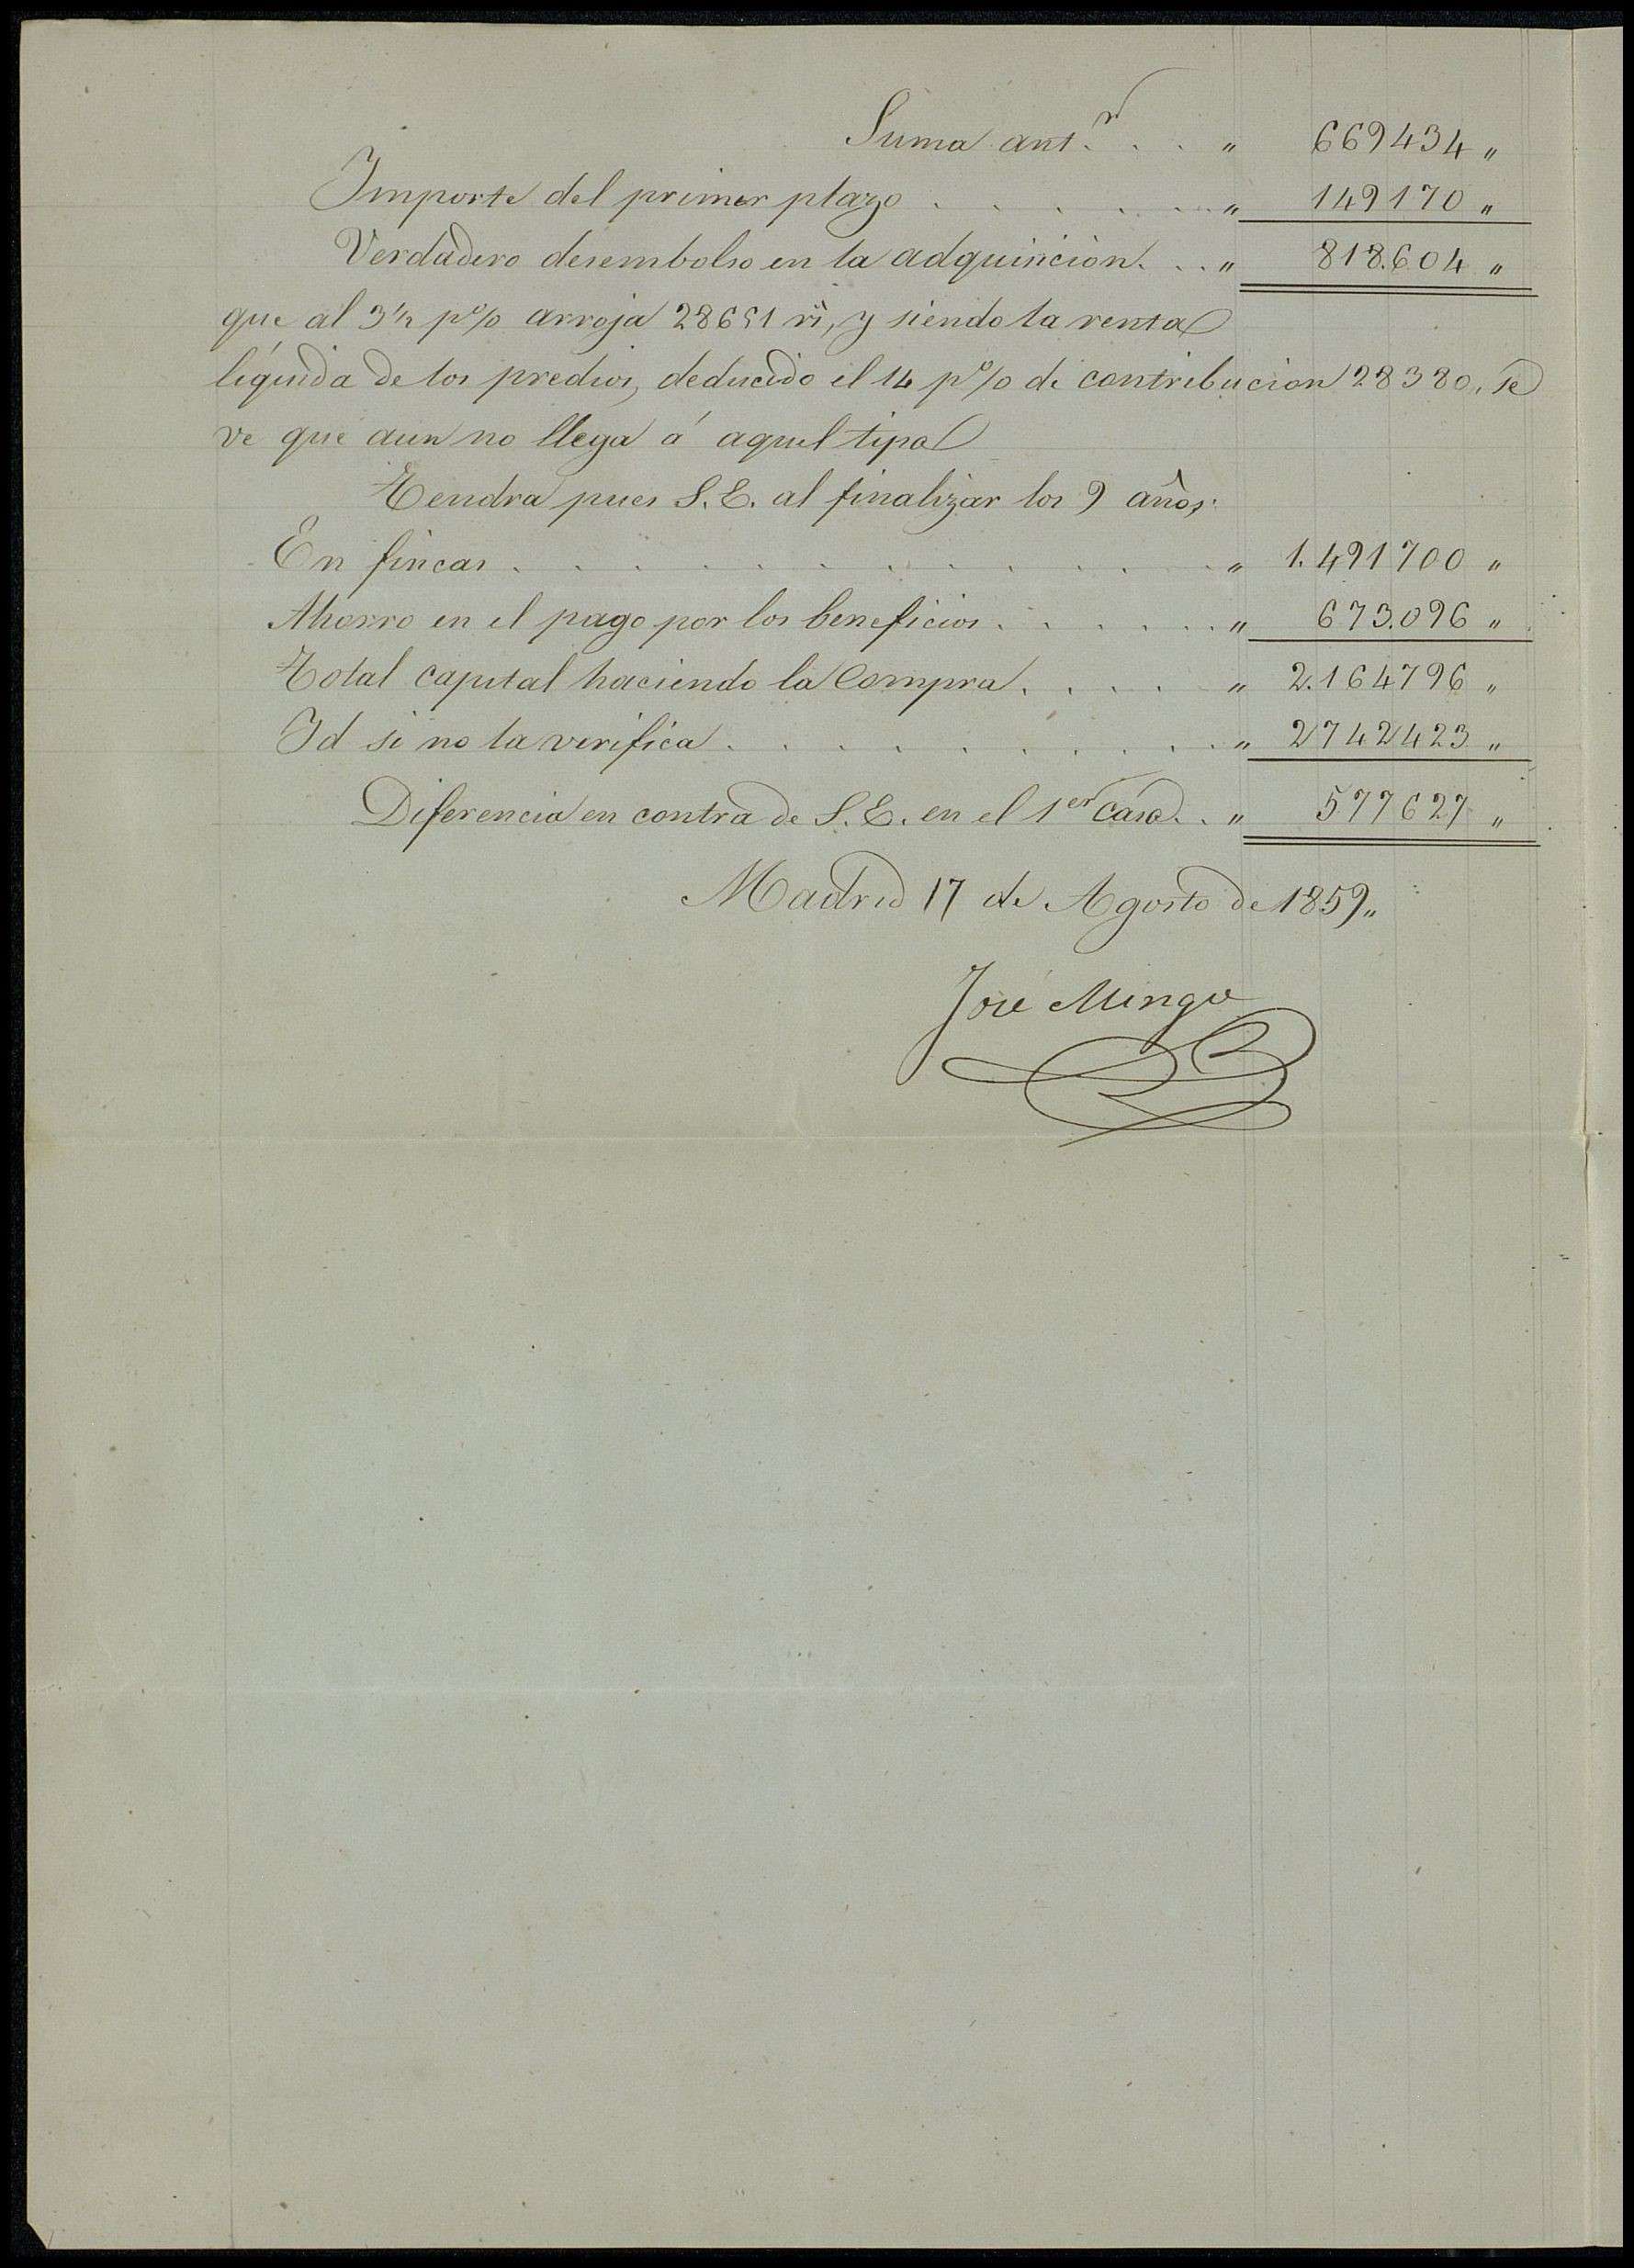 Suma ant.r . . . " 669434 "
Importe del primer plazo . . . . . . " 149170 "
Verdadero desembolso en la adquisicion . . . " 818.604 "
que al 3½ p% arroja 28651 rs, y siendo la renta
líquida de los predios, deducido el 14 p% de contribucion 28380, se
ve que aun no llega á aquel tipo
Tendra pues S.E. al finalizar los 9 años.
En fincas . . . . . . . . . . . . . " 1.491700 "
Ahorro en el pago por los beneficios . . . . . . " 673.096 "
Total capital haciendo la Compra . . . . " 2.164796 "
Id si no la verifica . . . . . . . . . . " 2742423 "
Diferencia en contra de S.E. en el 1er caso . . " 577627 "
Madrid 17 de Agosto de 1859 "
José Mingo